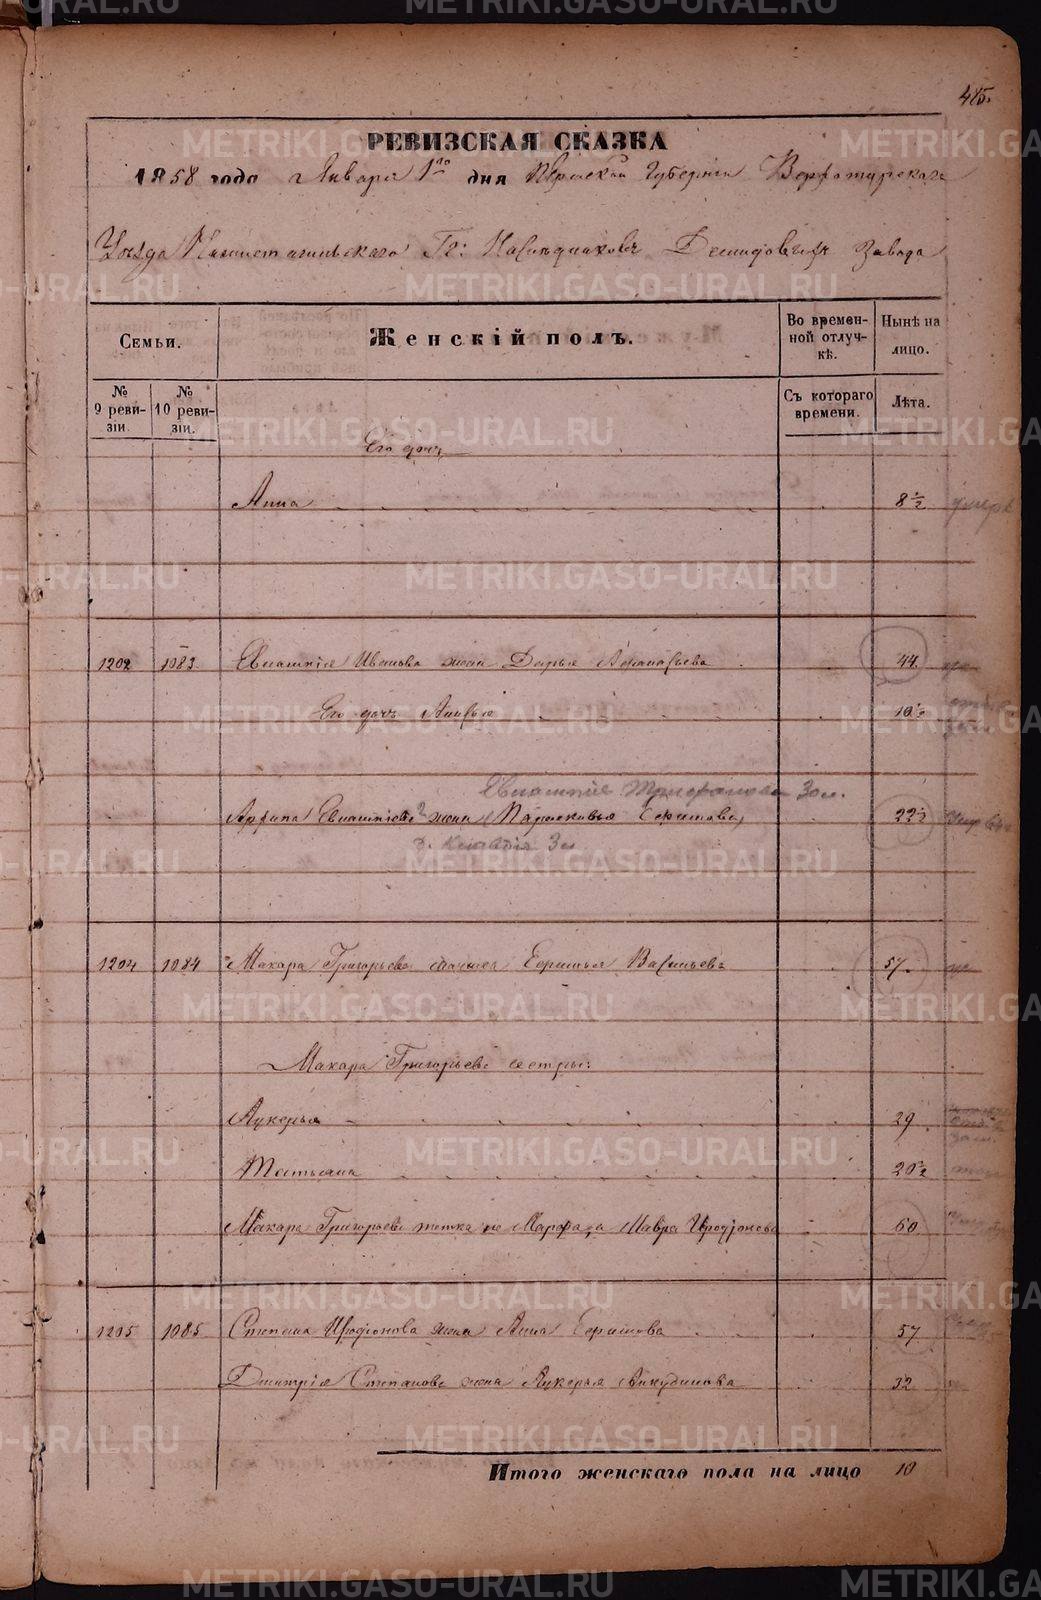 485.
РЕВИЗСКАЯ СКАЗКА
1858 года Января 1го дня Пермской Губернии Верхотурскаго
Уѣзда Нижнетагильскаго Гг: Наслѣдниковъ Демидовыхъ Завода
Семьи.
Женскій полъ.
Во времен-
ной отлуч-
кѣ.
Нынѣ на
лицо.
№
9 реви-
зіи.
№
10 реви-
зіи.
Съ котораго
времени.
Лѣта.
Его дочь
Анна 8½ умер
1202 1083 Евлампія Иванова жена Дарья Афанасьева 44.
Его дочь 10½
Евлампіе Зол.
Архипа Евлампіева 2 жена Парасковья Ефимова 22½
1204 1084 Макара Григорьева мачиха Васильева 57.
Макара Григорьева сестры:
Лукерья 29
Татьяна 20½
Макара Григорьева тетка Мавра Иродіонова 60.
1205 1085 Степана Иродіонова жена Анна Ефимова 57
Дмитрія Степанова жена Лукерья Анкудинова 32
Итого женскаго пола на лицо 10
METRIKI.GASO-URAL.RU